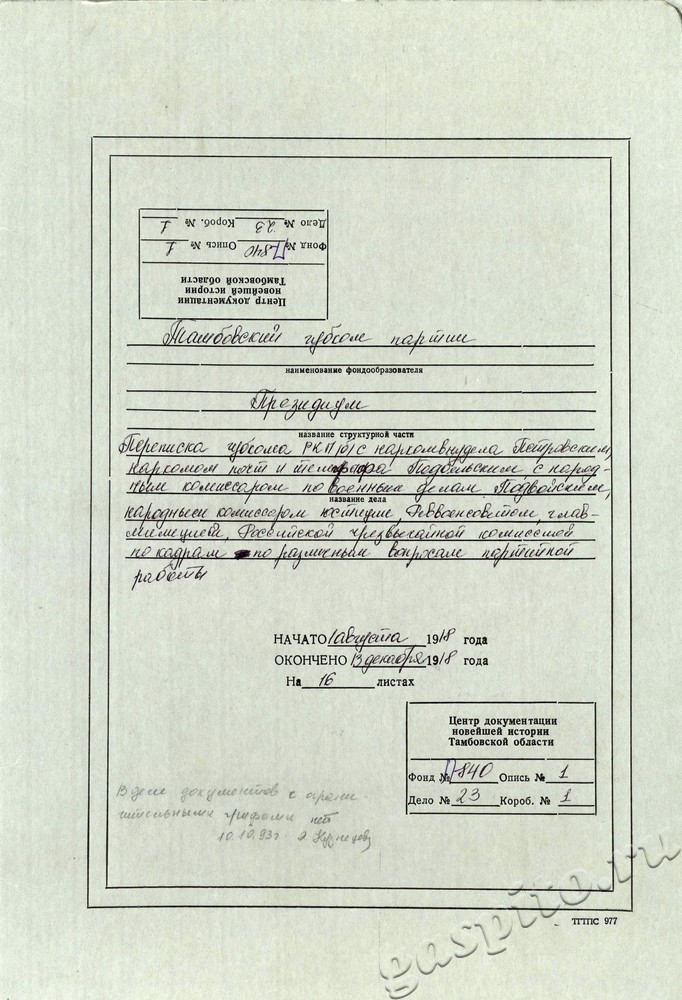 Центр документации
новейшей истории
Тамбовской области
Фонд № П-840 Опись № 1
Дело № 23 Короб. № 1
Тамбовский губком партии
наименование фондообразователя
Президиум
название структурной части
Переписка губкома РКП(б) с наркомвнудела Петровским,
наркомом почт и телеграфа Подбельским с народ-
ным комиссаром по военным делам Подвойским,
название дела
народным комиссаром юстиции, Реввоенсоветом, глав-
милицией, Российской чрезвычайной комиссией
по кадрам по различным вопросам партийной
работы
НАЧАТО 1 августа 1918 года
ОКОНЧЕНО 13 декабря 1918 года
На 16 листах
Центр документации
новейшей истории
Тамбовской области
Фонд № П-840 Опись № 1
Дело № 23 Короб. № 1
В деле документов с ограни-
чительными грифами нет
10.10.93г. Кузнецова
ТГТПС 977
gaspito.ru